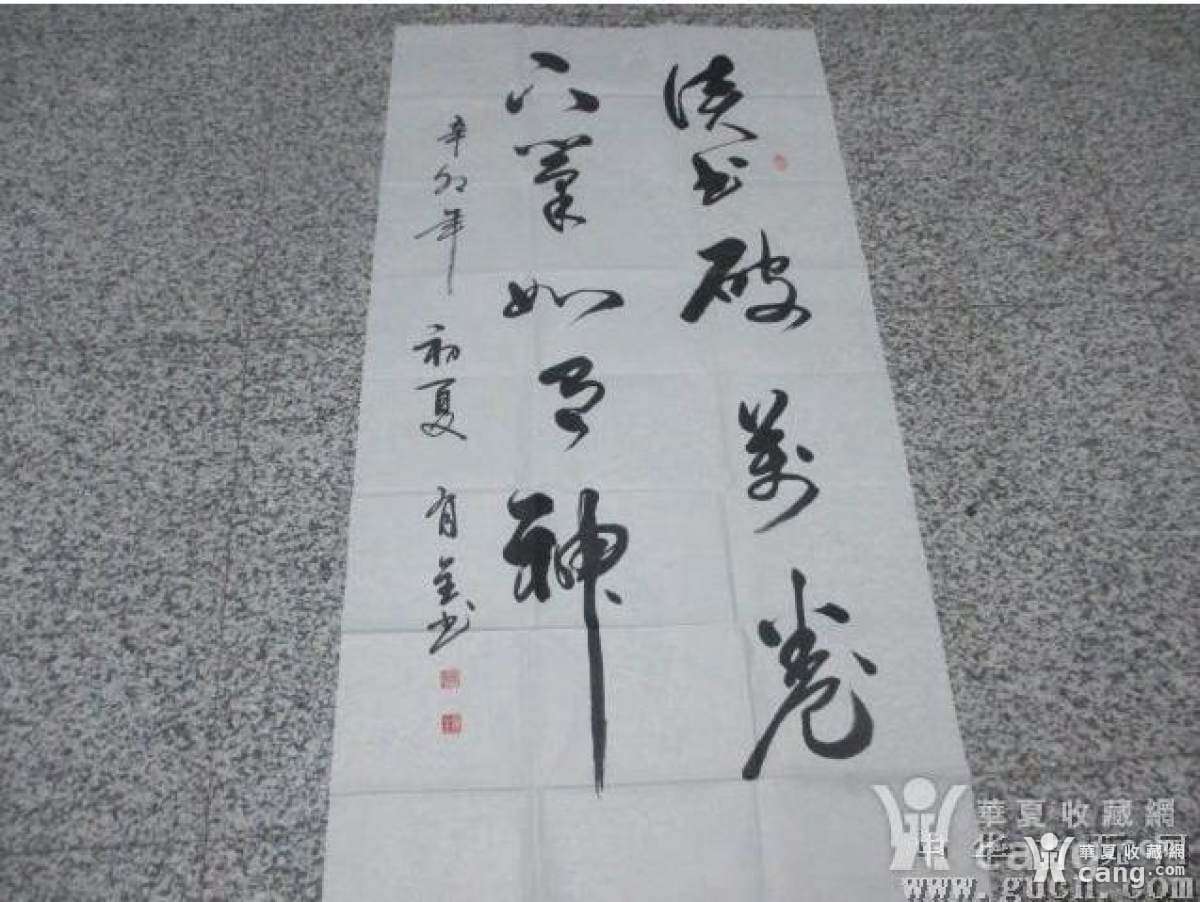 读书破萬卷
下筆如有神
辛卯年 初夏 有金书
華夏收藏網
華夏收藏網
cang.com
www.gucn.com